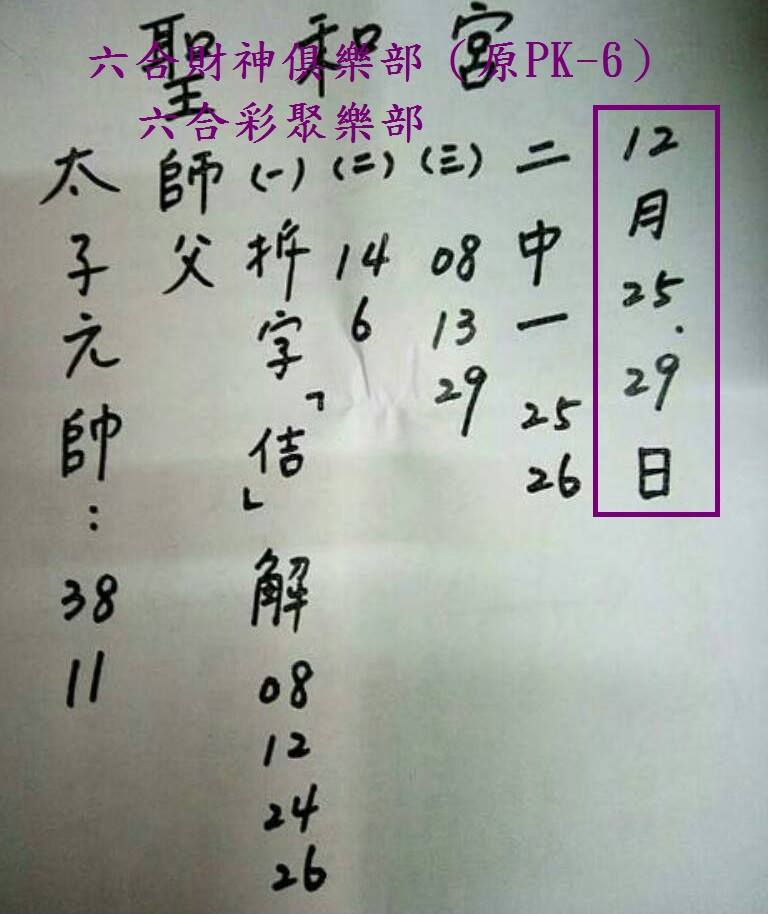 聖和宮
六合財神俱樂部（原PK-6）
六合彩聚樂部
太子元帥：38 11
師父
(一)拆字「佶」解 08 12 24 26
(二) 14 6
(三) 08 13 29
二中一 25 26
12月25.29日